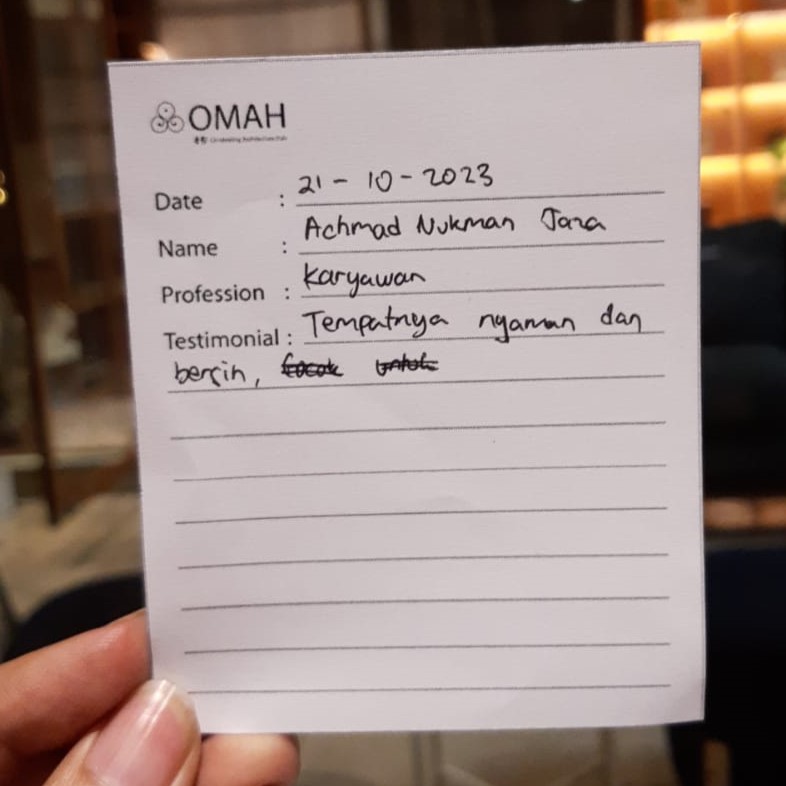 OMAH
Date : 21 - 10 - 2023
Name : Achmad Nukman Jaza
Profession : Karyawan
Testimonial : Tempatnya nyaman dan
bersih, cocok untuk